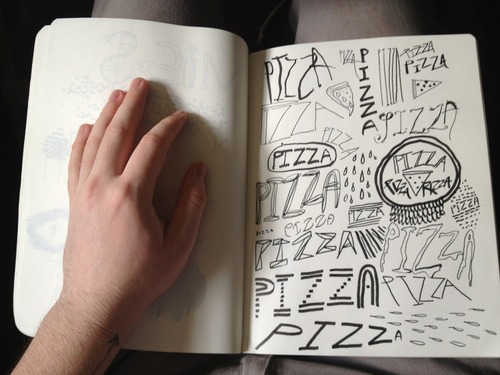 PIZZA
PIZZA
PIZZA
PIZZA
PIZZA
IZZA
PIZZA
PIZZ
PIZZA
PIZZA
PIZZA
PIZZA
PIZZA
PIZZA
PIZZA
PIZZA
PIZZA
PIZZA
PIZZA
PIZZA
PIZZA
PIZZA